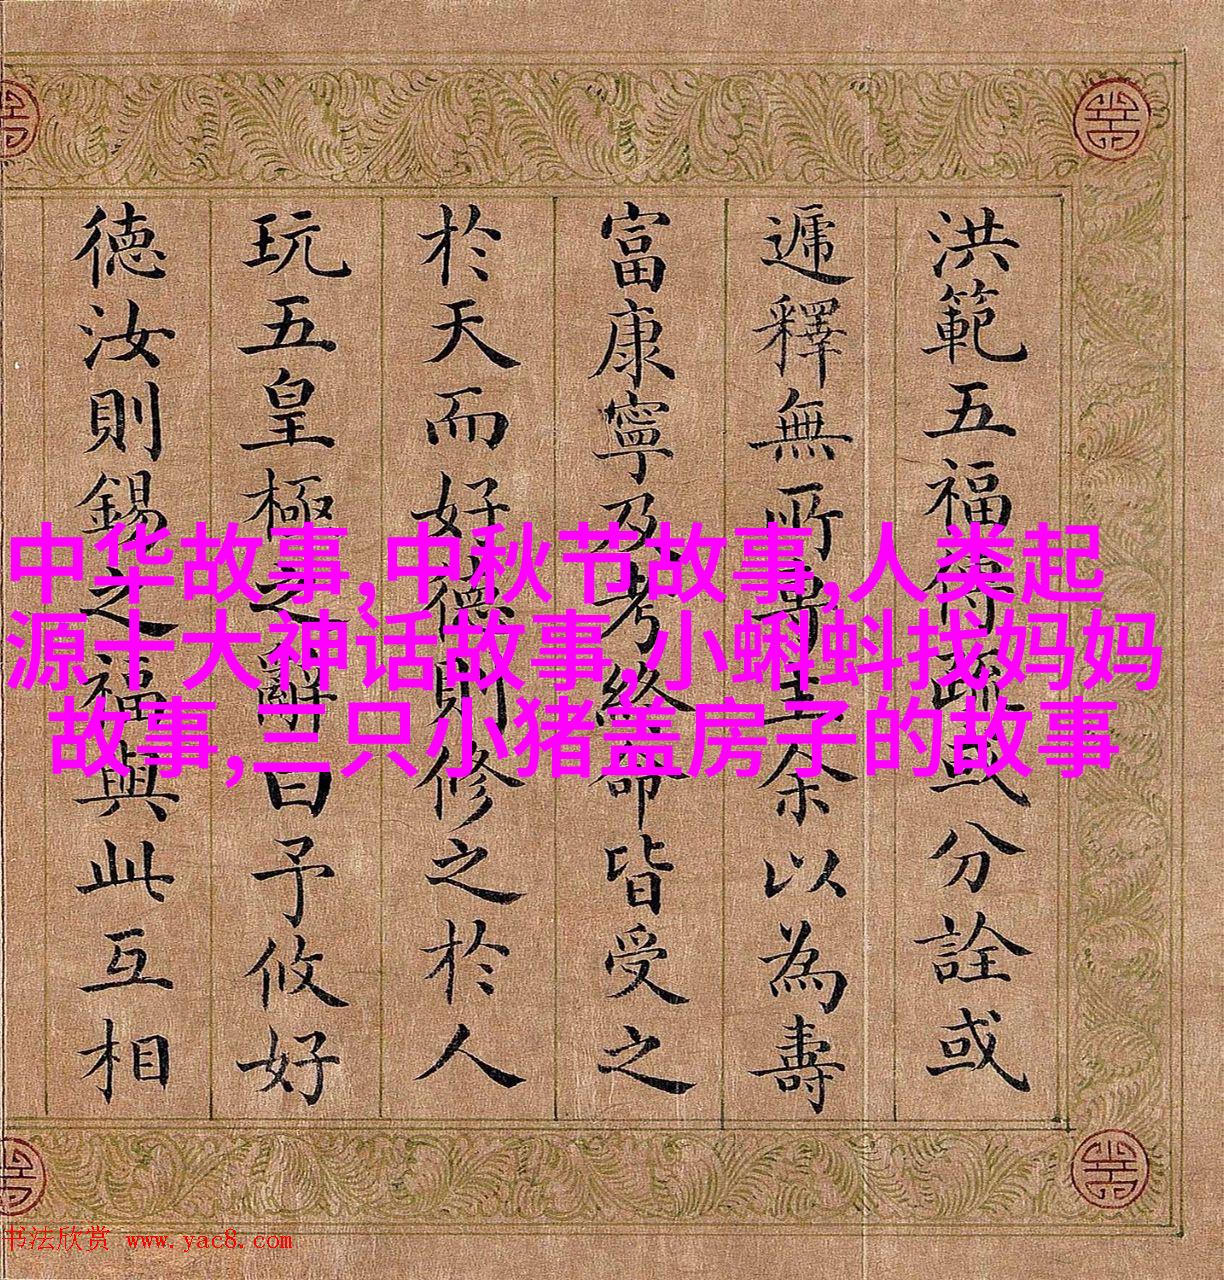 洪範五福傳疏或分詮或
遞釋無所專主余以為壽
富康寧乃考終命皆受之
於天而好德則修之於人
玩五皇極之辭曰予攸好
德汝則錫之福與此互相
中华故事,中秋节故事,人类起
源十大神话故事,小蝌蚪找妈妈
故事,三只小猪盖房子的故事
书法欣赏 www.yac8.com